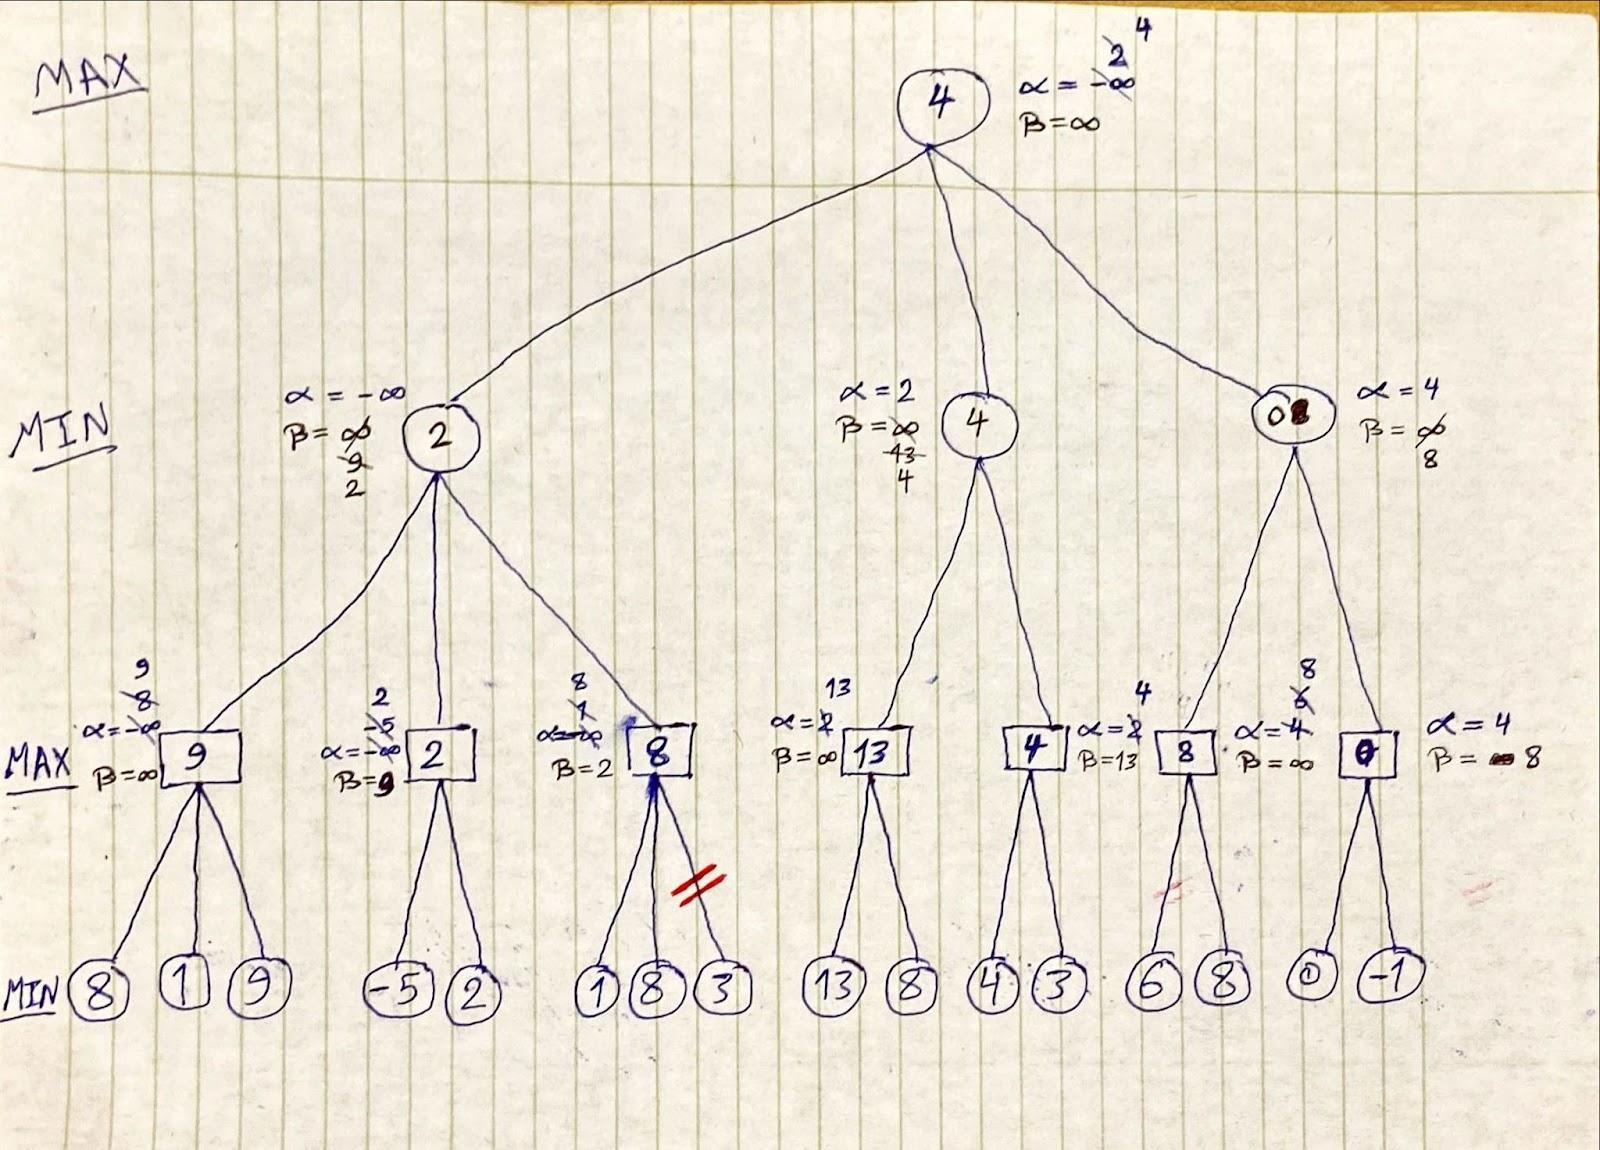 4
2
MAX
4
α = -∞
β = ∞
MIN
α = -∞
β = ∞
9
2
2
α = 2
β = ∞
13
4
4
0
α = 4
β = ∞
8
MAX
9
8
α = -∞
β = ∞
9
2
-5
α = -∞
β = 9
2
8
1
α = -∞
β = 2
8
13
α = 2
β = ∞
13
4
4
α = 2
β = 13
8
8
6
α = 4
β = ∞
0
α = 4
β = 8
MIN 8 1 9 -5 2 1 8 3 13 8 4 3 6 8 0 -1